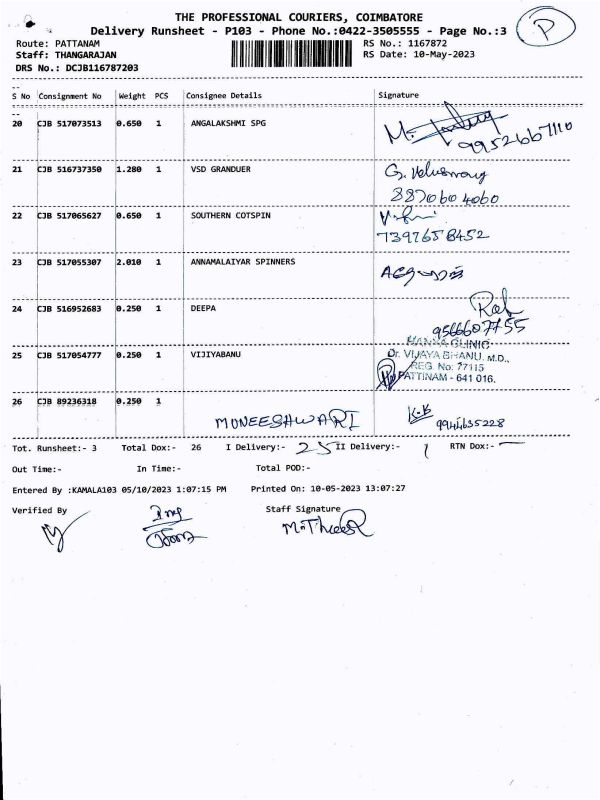 THE PROFESSIONAL COURIERS, COIMBATORE
Delivery Runsheet - P103 - Phone No.:0422-3505555 - Page No.:3
P
Route: PATTANAM RS No.: 1167872
Staff: THANGARAJAN RS Date: 10-May-2023
DRS No.: DCJB116787203
S No Consignment No Weight PCS Consignee Details Signature
20 CJB 517073513 0.650 1 ANGALAKSHMI SPG
9952667110
21 CJB 516737350 1.280 1 VSD GRANDUER G. Veluswamy
8870604060
22 CJB 517065627 0.650 1 SOUTHERN COTSPIN
7397658452
23 CJB 517055307 2.010 1 ANNAMALAIYAR SPINNERS
24 CJB 516952683 0.250 1 DEEPA
9566607755
25 CJB 517054777 0.250 1 VIJIYABANU
CLINIC
Dr. VIJAYA BHANU, M.D.,
REG. No: 77115
PATTINAM - 641 016.
26 CJB 89236318 0.250 1
MUNEESHWARI 9944635228
Tot. Runsheet:- 3 Total Dox:- 26 I Delivery:- 25 II Delivery:- 1 RTN Dox:- —
Out Time:- In Time:- Total POD:-
Entered By :KAMALA103 05/10/2023 1:07:15 PM Printed On: 10-05-2023 13:07:27
Verified By Staff Signature